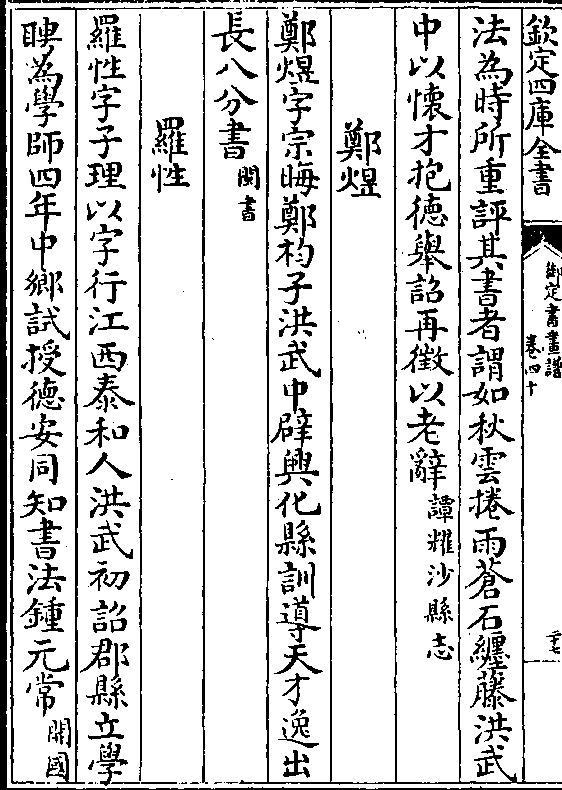 欽定四庫全書
御定書畫譜
卷四十
二十七
法為時所重評其書者謂如秋雲捲雨蒼石纏藤洪武
中以懷才抱德舉詔再徵以老辭譚糴沙縣志
鄭煜
鄭煜字宗晦鄭杓子洪武中辟興化縣訓導天才逸出
長八分書閩書
羅性
羅性字子理以字行江西泰和人洪武初詔郡縣立學
聘為學師四年中鄉試授德安同知書法鍾元常開國